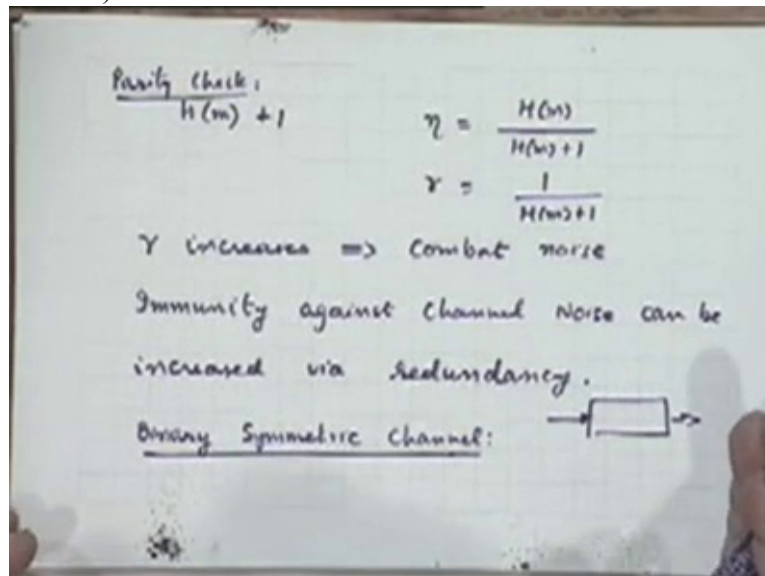 Parity Check:
H(m) + 1
η = H(m) / H(m)+1
γ = 1 / H(m)+1
γ increases => Combat noise
Immunity against Channel Noise can be
increased via redundancy.
Binary Symmetric Channel: